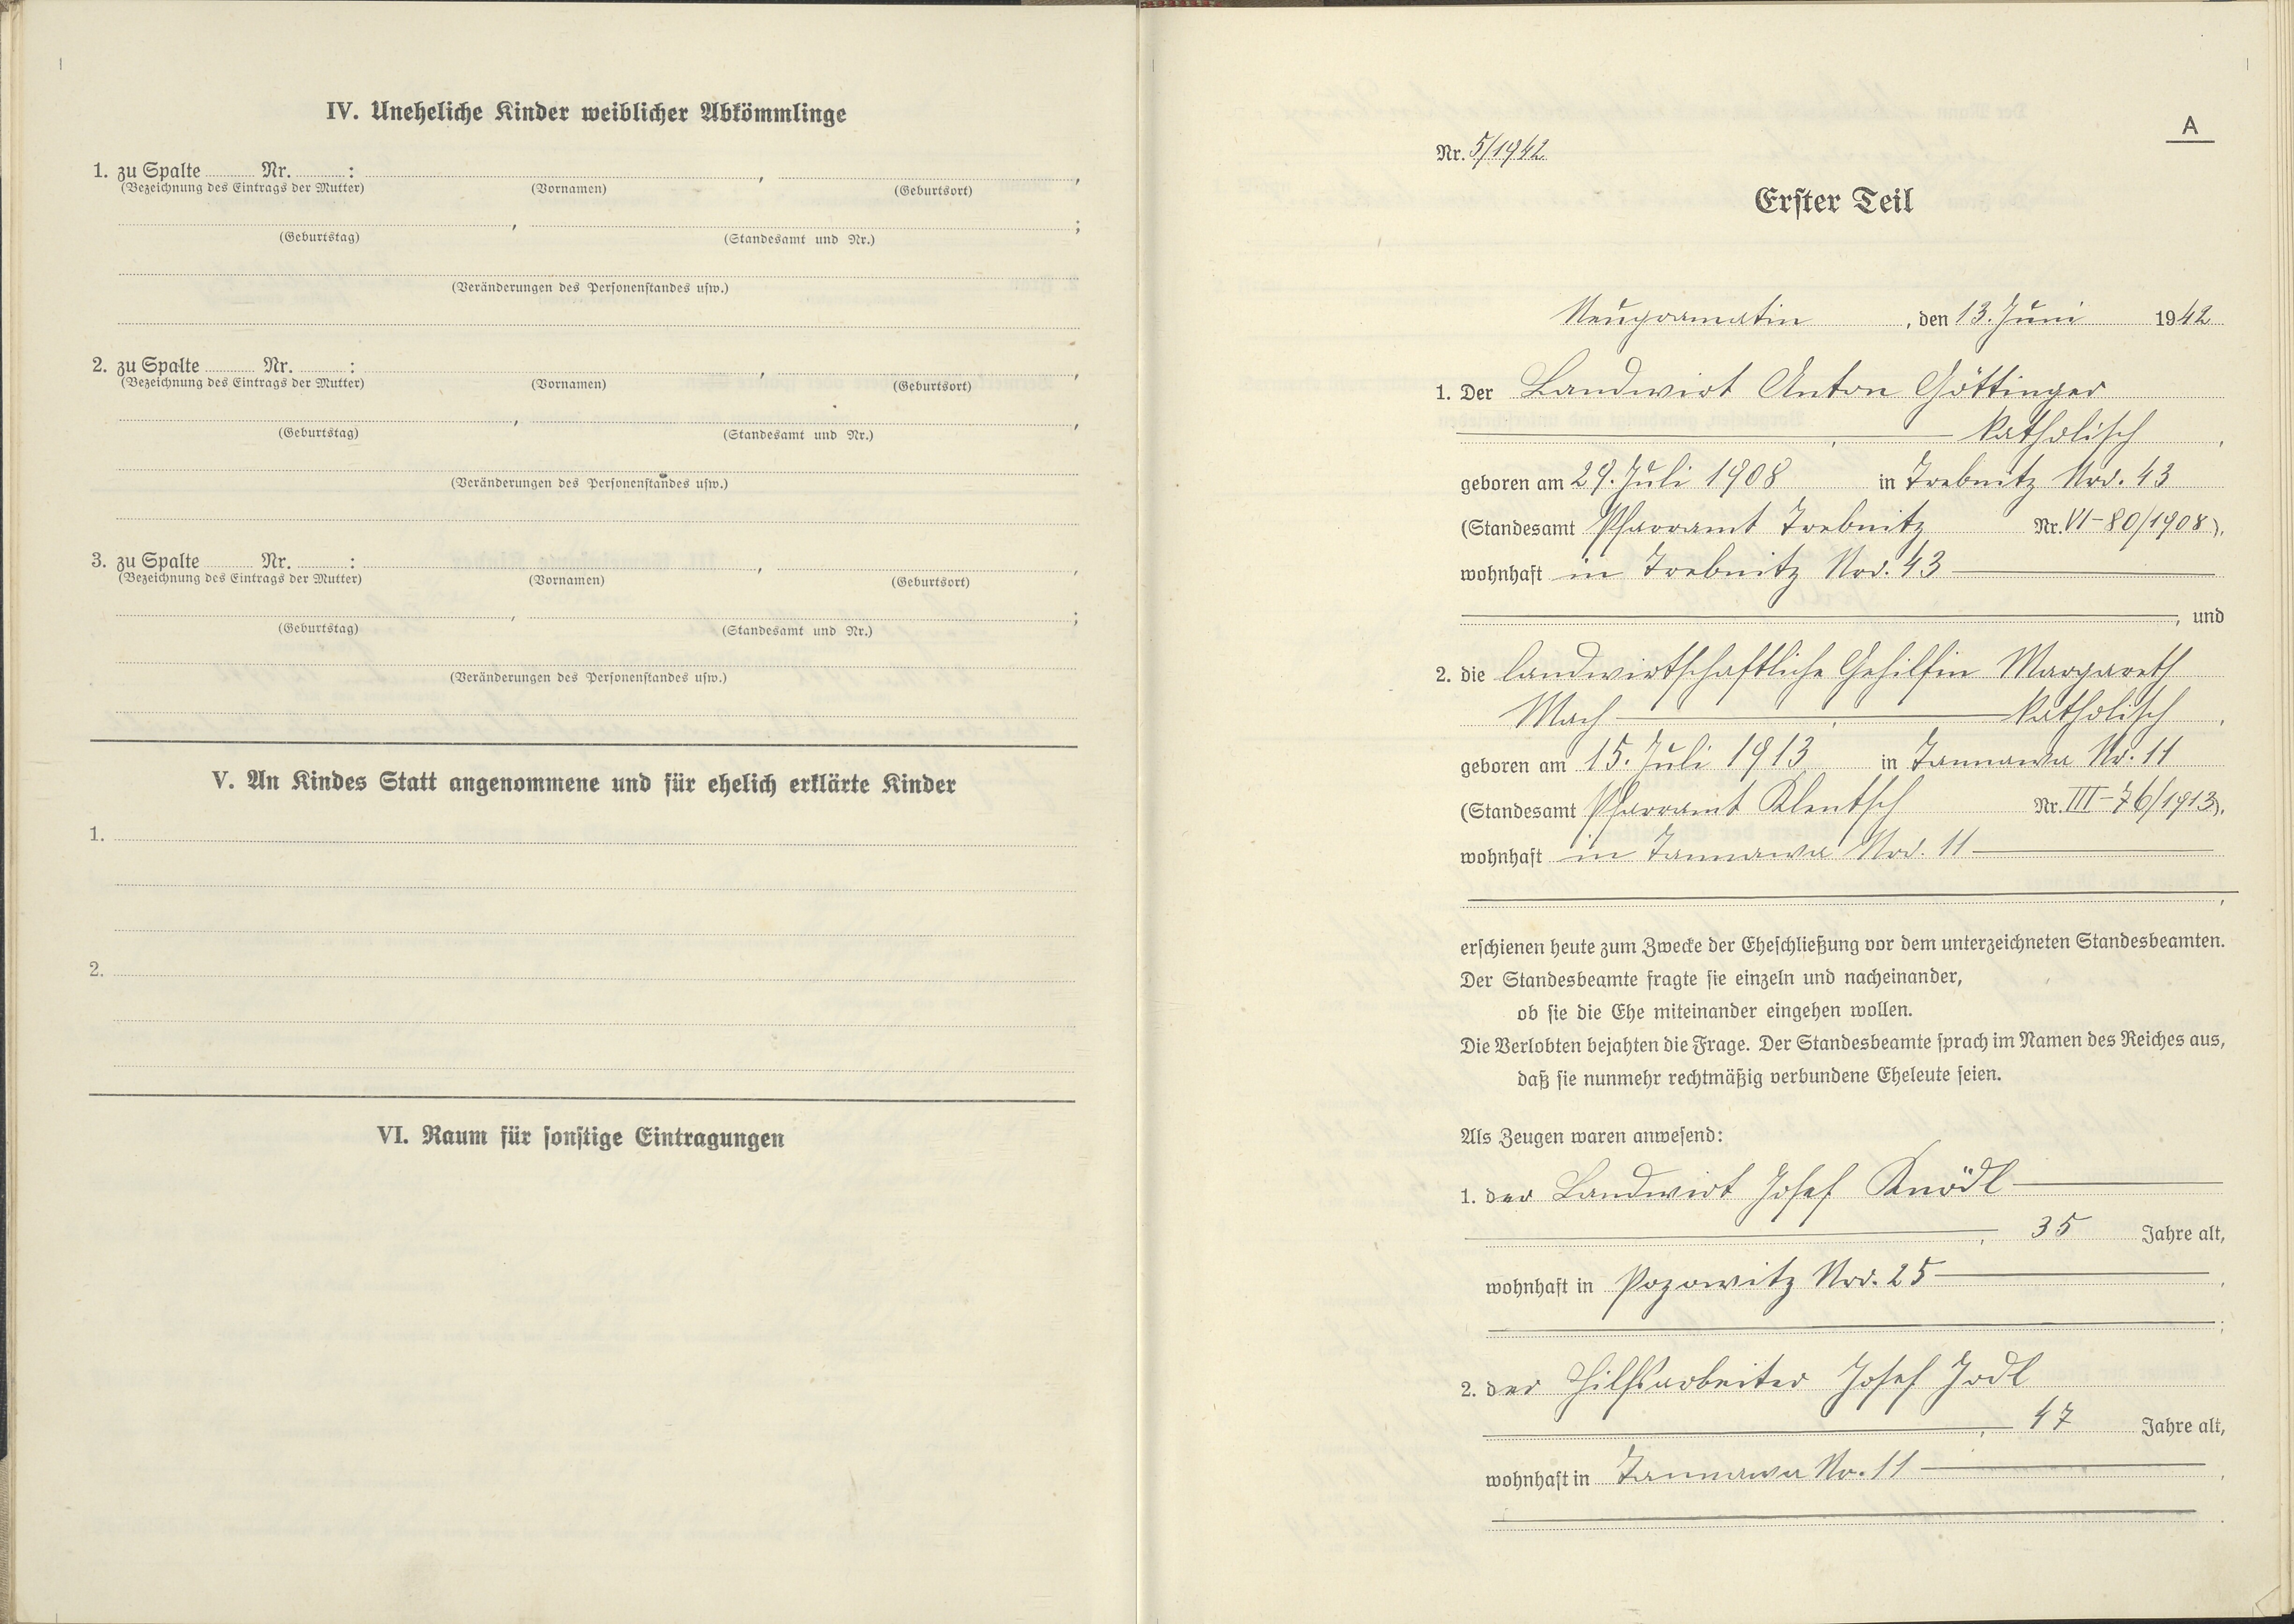 IV. Uneheliche Kinder weiblicher Abkömmlinge
1. zu Spalte ........ Nr. ........ : ........ , ........ ,
(Bezeichnung des Eintrags der Mutter) (Vornamen) (Geburtsort)
........ , ........ ;
(Geburtstag) (Standesamt und Nr.)
(Veränderungen des Personenstandes usw.)
2. zu Spalte ........ Nr. ........ : ........ , ........ ,
(Bezeichnung des Eintrags der Mutter) (Vornamen) (Geburtsort)
........ , ........ ,
(Geburtstag) (Standesamt und Nr.)
(Veränderungen des Personenstandes usw.)
3. zu Spalte ........ Nr. ........ : ........ , ........ ,
(Bezeichnung des Eintrags der Mutter) (Vornamen) (Geburtsort)
........ , ........ ;
(Geburtstag) (Standesamt und Nr.)
(Veränderungen des Personenstandes usw.)
V. An Kindes Statt angenommene und für ehelich erklärte Kinder
1.
2.
VI. Raum für sonstige Eintragungen
A
Nr. 5/1942
Erster Teil
Neugramatin, den 13. Juni 1942
1. Der Landwirt Anton Göttinger
, katholisch,
geboren am 29. Juli 1908 in Trebnitz Nro. 43
(Standesamt Pfarramt Trebnitz Nr. VI-80/1908),
wohnhaft in Trebnitz Nro. 43
, und
2. die landwirtschaftliche Gehilfin Margareth
Mach, katholisch,
geboren am 15. Juli 1913 in Tannawa Nr. 11
(Standesamt Pfarramt Klentsch Nr. III-76/1913),
wohnhaft in Tannawa Nro. 11
,
erschienen heute zum Zwecke der Eheschließung vor dem unterzeichneten Standesbeamten.
Der Standesbeamte fragte sie einzeln und nacheinander,
ob sie die Ehe miteinander eingehen wollen.
Die Verlobten bejahten die Frage. Der Standesbeamte sprach im Namen des Reiches aus,
daß sie nunmehr rechtmäßig verbundene Eheleute seien.
Als Zeugen waren anwesend:
1. der Landwirt Josef Knödl
, 35 Jahre alt,
wohnhaft in Pozowitz Nro. 25,
;
2. der Hilfsarbeiter Josef Jodl
, 47 Jahre alt,
wohnhaft in Tannawa No. 11,
.